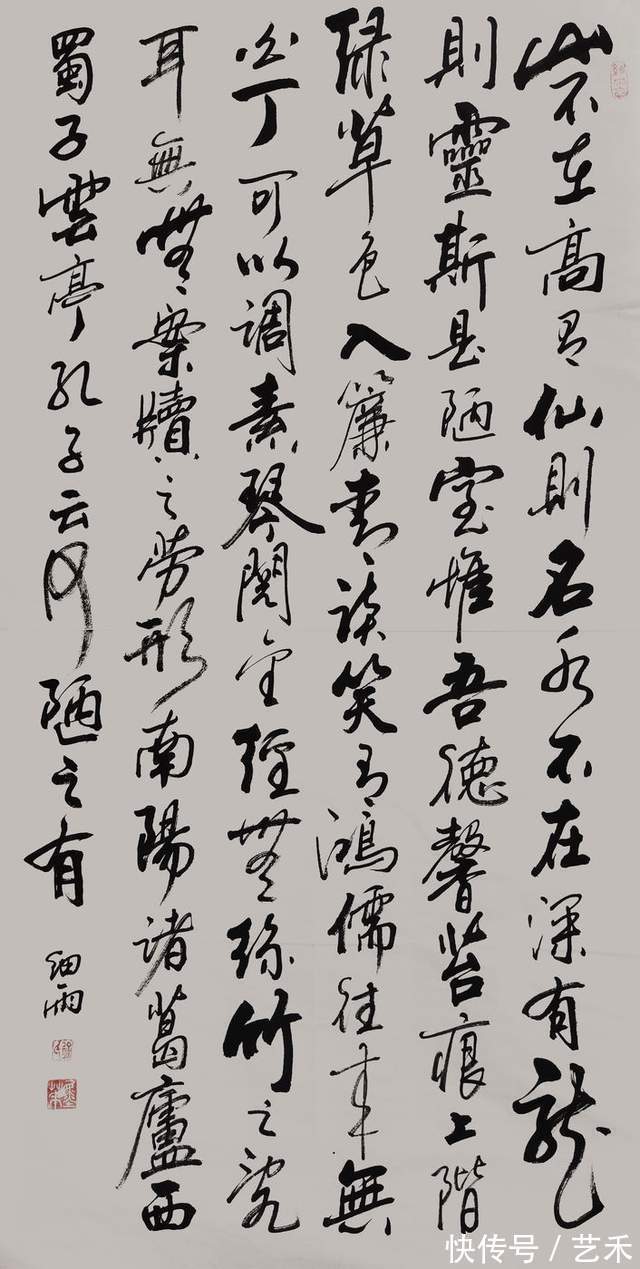 山不在高有仙則名水不在深有龍
則靈斯是陋室惟吾德馨苔痕上階
緑草色入簾青談笑有鴻儒往來無
白丁可以調素琴閱金經無絲竹之亂
耳無無案牘之勞形南陽諸葛廬西
蜀子雲亭孔子云何陋之有
細雨
快传号 / 艺禾